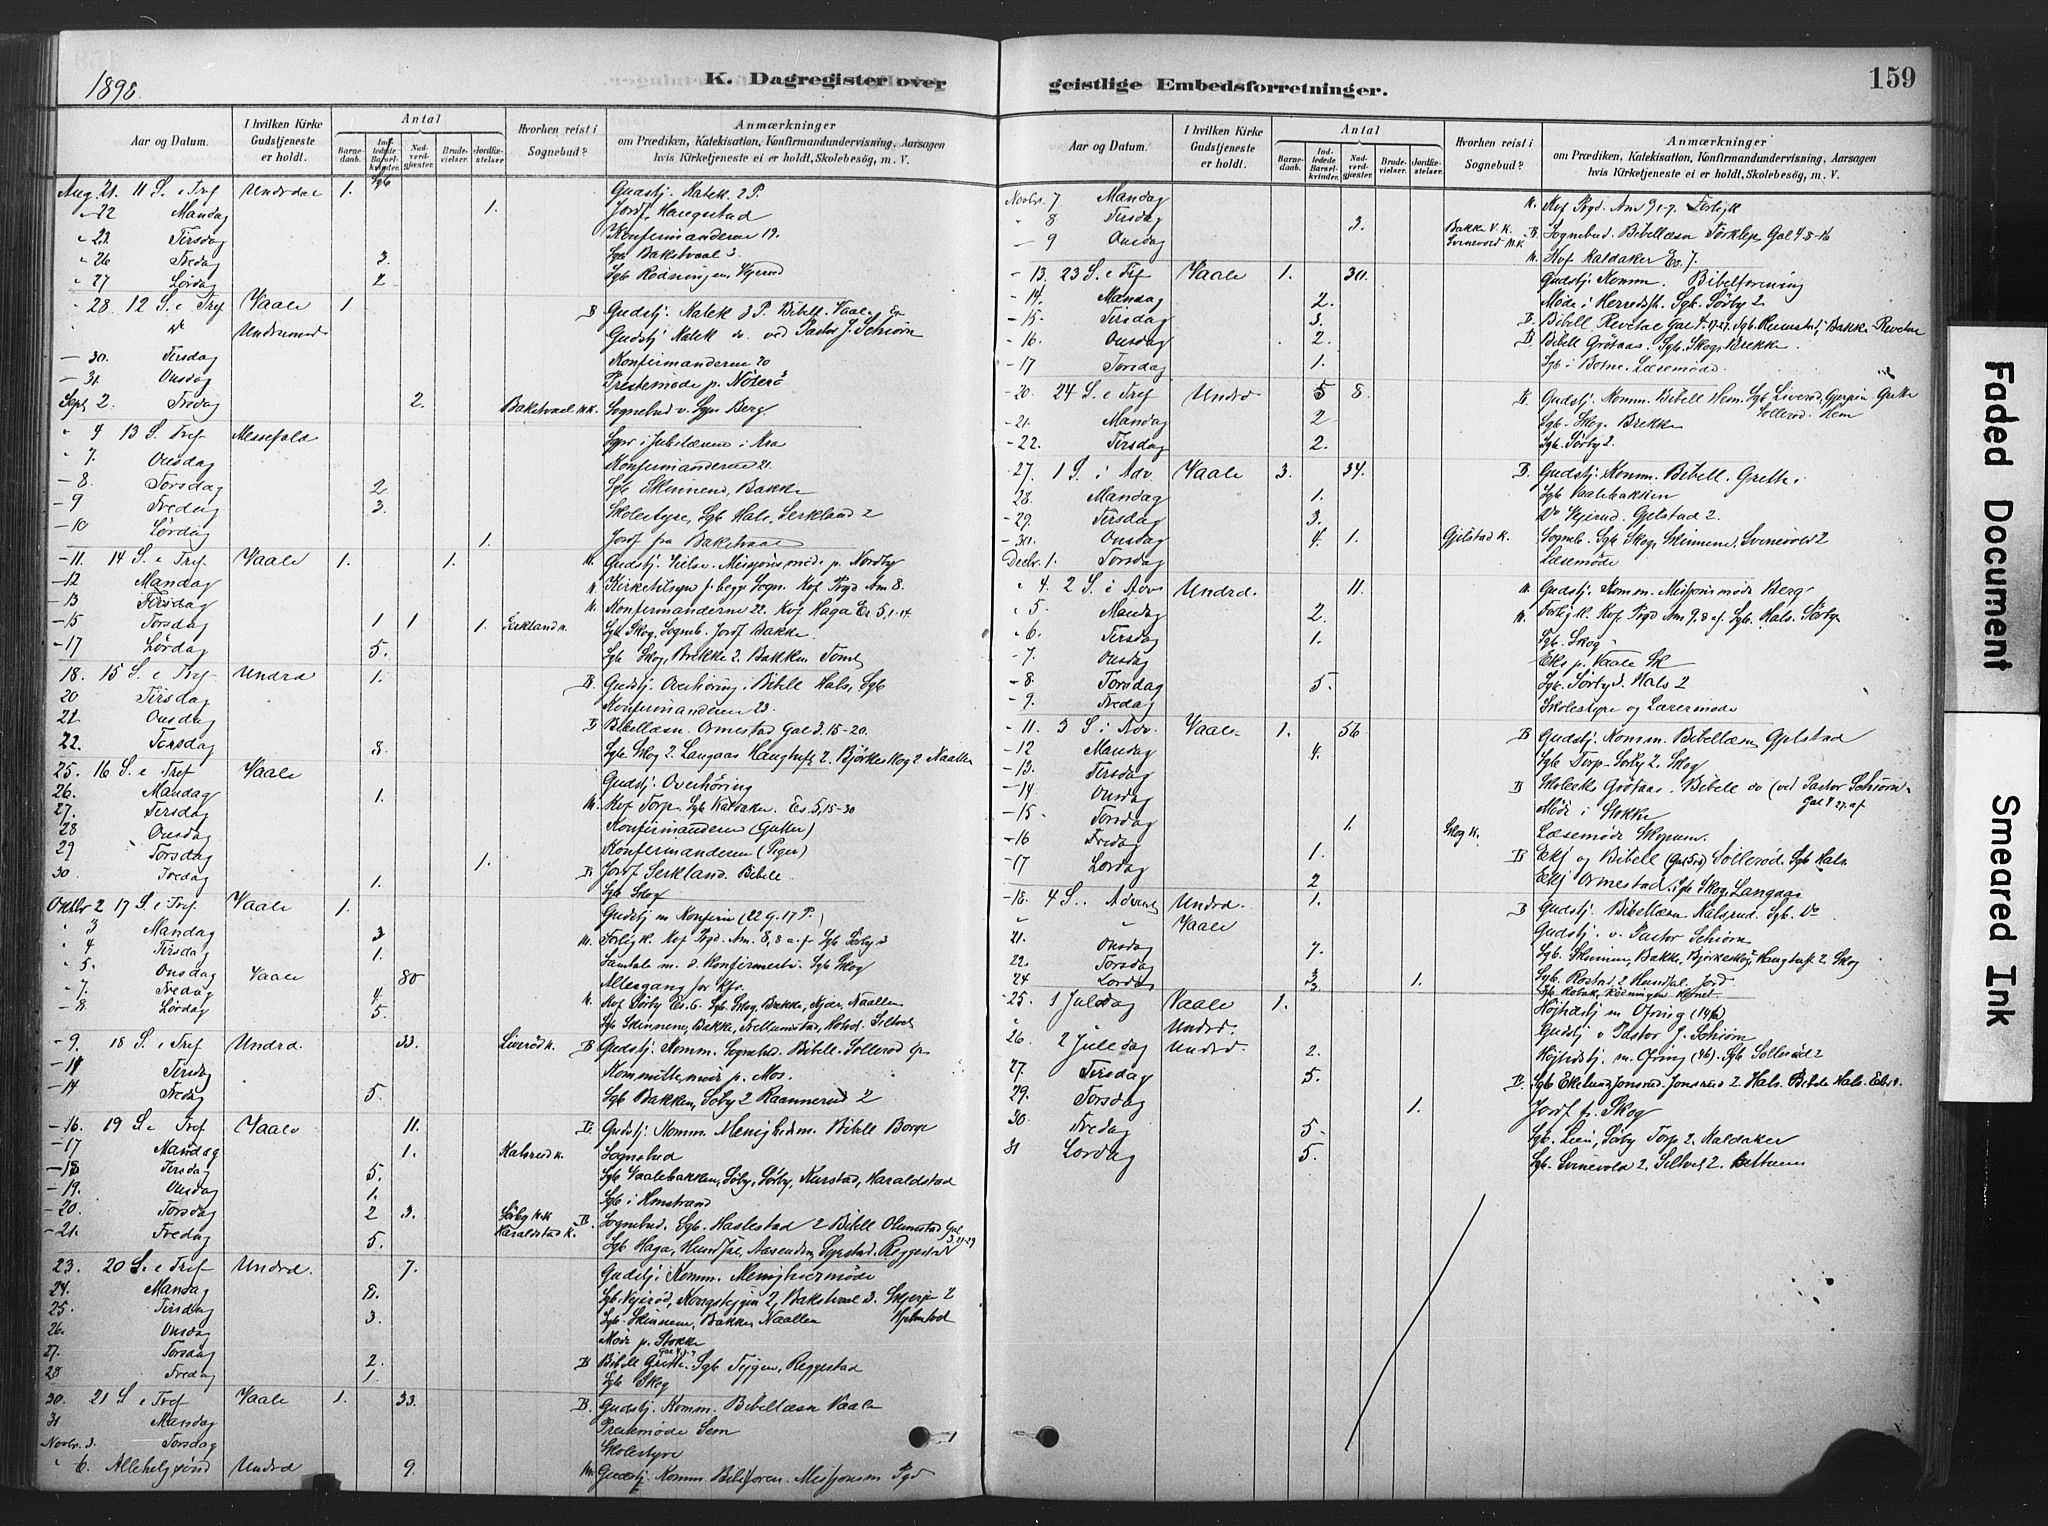 1898.
K. Dagregister over
Aar og Datum.
I hvilken Kirke Gudstjeneste er holdt.
Antal
Barnedaab.
Indledede Barselkvinder.
Nadverdgjæster.
Brudevielser.
Jordfæstelser
Hvorhen reist i Sognebud?
Anmærkninger
om Prædiken, Katekisation, Konfirmandundervisning, Aarsagen
hvis Kirketjeneste ei er holdt, Skolebesøg, m. V.
Aug. 21. 11 S. e Tref Undrdal 1. Gudstj. Katek. 2 P.
" 22 Mandag 1. Jordf. Haugestad
" 23. Tirsdag Konfirmanderne 19.
" 26 Fredag 3. Sgb Bakstvaal 3.
" 27 Lørdag 2 Sgb Rødningen, Vejerud
- 28. 12 S. e Tref Vaale 1. B Gudstj Katek 3 P. Bibell. Vaale
Undrumsd Gudstj Katek do. ved Pastor J. Schiørn
- 30. Tirsdag Konfirmanderne 20
- 31. Onsdag Prestemøde p. Nøterø
Sept 2. Fredag 2. Bakstvaal Sognebud v. Sgpr Berg
" 4 13 S. Tref Messefald Sgpr i Jubilæum i Kra
" 7. Onsdag Konfirmanderne 21.
- 8. Torsdag 2 Sgb Skinnene, Bakke
- 9 Fredag 3. Skolestyre, Sgb Hals, Serkland 2
- 10 Lørdag 1. Jordf fra Bakstvaal
- 11. 14 S. e Tref. Vaale 1. 1. M. Gudstj. Vielse. Missjonsmøde p. Nordby
- 12 Mandag Kirketilsyn f. begge Sogn. Kof Pgd Am 8.
- 13 Tirsdag M Konfirmanderne 22. Kof Haga Es 5,1-14
- 15 Torsdag 1 1 1. Serkland k. Sgb Skog. Sogneb. Jordf Bakke.
- 17 Lørdag 5. Sgb Skog, Brekke 2. Bakken
18. 15 S. e Tref Undrd 1. B. Gudstj. Overhøring. Bibell Hals, Sgb
20 Tirsdag Konfirmanderne 23.
21. Onsdag B Bibellæsn. Ormestad Gal 3. 15-20.
22. Torsdag 8. Sgb Skog 2. Langaas Haugtuft 2. Bjørkeskog 2 Naallen
25. 16 S. e Tref Vaale Gudstj. Overhøring
26. Mandag 1. M. Kof Torp. Sgb Kaldaker. Es. 5,15-30
27. Tirsdag Konfirmanderne (Gutter)
28 Onsdag Konfirmanderne (Piger)
29 Torsdag 1. B Jordf Serkland. Bibell.
30 Fredag 1. Sgb Skog
Oktbr 2 17 S. e Tref. Vaale 1. Gudstj m Konfirm (22 G. 17 P.)
" 3 Mandag 3 M. Forligk. Kof Pgd. Am. 8,8 a.f Sgb Sørby 3
" 4 Tirsdag 1. Samtale m. d. Konfirmerte. Sgb Skog
" 5. Onsdag Vaale 80 Altergang for Kfr.
- 7. Fredag 4 M. Kof Sørby Es. 6. Sgb Skog, Bakke, Naallen
- 8. Lørdag 5. Sgb Skinnene, Bakke
- 9. 18 S. e Tref Undrd. 33. Liverød k. B Gudstj. Komm. Sognebud. Bibell. Sollerød
- 11 Tirsdag Kommittemøde p. Mos.
- 14 Fredag 5. Sgb Bakken, Søby 2 Raannerud 2
- 16. 19 S. e Tref Vaale 11. B. Gudstj Komm. Menighedsm. Bibell Borge
- 17 Mandag 1. Kalsrud k. Sognebud
- 18 Tirsdag 5. Sgb Vaalebakken, Søby, Sørby, Kurstad, Haraldstad
- 19. Onsdag 1. Sgb i Hmstrand
- 20 Torsdag 2 3. Sørby B. Sognebud. Sgb. Haslestad 2 Bibell Olumstad Gal 3.21-29
- 21. Fredag 5. Haraldstad K. Sgb Haga, Hundsal, Aasenden, Reggestad
23. 20 S. e Tref Undrd. 7. Gudstj Komm. Menighedsmøde
24. Mandag 8. Sgb. Vejerød, Bakstvaal 3. Skjerpe 2
25. Tirsdag 3. Sgb. Skinnene, Bakke, Naallen
26. Onsdag Møde p. Stokke
27. Torsdag 2. B Bibell Grette. Sgb Tejgen, Reggestad
28 Fredag 1. Sgb Skog
30. 21 S. e Tref Vaale 1. 33. B. Gudstj. Komm. Bibellæsn Vaale
31 Mandag Prestemøde Sem
Novbr. 3. Torsdag Skolestyre
" 6. Allehelgsønd Undrd 9. M. Gudstj. Komm. Bibelforen. Missjonsm Pgd
geistlige Embedsforretninger.
159
Aar og Datum.
I hvilken Kirke Gudstjeneste er holdt.
Antal
Barnedaab.
Indledede Barselkvinder.
Nadverdgjæster.
Brudevielser.
Jordfæstelser.
Hvorhen reist i Sognebud?
Anmærkninger
om Prædiken, Katekisation, Konfirmandundervisning, Aarsagen
hvis Kirketjeneste ei er holdt, Skolebesøg, m. V.
Novbr. 7 Mandag M. Kof Pgd. Am 9,1-7. Forligk
" 8 Tirsdag 3. Bakke V. K. B Sognebud. Bibellæsn Torklep Gal 4.8-16
- 9 Onsdag Svinevold M.K. M. Kof Kaldaker Es. 7.
- 13. 23 S. e Tref Vaale 1. 30. Gudstj. Komm. Bibelforening
- 14. Mandag 2. Møde i Herredsst. Sgb. Sørby 2
- 15. Tirsdag 3. B. Bibell Revetal Gal 4.17-27. Sgb. Bakke Revetal
- 16. Onsdag 2. B Bibell Grøtaas. Sgb. Skog, Brekke.
- 17 Torsdag 1. Sgb i Botne. Læsemøde.
- 20. 24 S. e Tref Undrd 5 8. B. Gudstj. Komm. Bibell Hem. Sgb Liverød, Gjerpen Grette Sollerød. Hem
- 21. Mandag 2 Sgb. Skog. Brekke
- 22. Tirsdag 2. Sgb. Sørby 2.
- 27. 1 S. i Adv. Vaale 3. 34. B. Gudstj. Komm. Bibell. Grette.
28. Mandag 1. Sgb Vaalebakken
- 29. Tirsdag 3. Do Vejrud. Gjelstad 2.
- 30. Onsdag 4. 1. Gjelstad k. Sogneb. Sgb Skog, Skinnene, Svinevold 2
Decbr. 1. Torsdag Læsemøde
" 4. 2 S. i Adv. Undrd. 11. M. Gudstj. Komm. Missjonsmøde Berg
" 5. Mandag 2. M. Forligk. Kof Pgd Am 9.8 a.f. Sgb. Hals. Sørby
" 6. Tirsdag 1. Sgb. Skog
- 7. Onsdag Eks p. Vaale Sk
- 8. Torsdag 5. Sgb. Sørby 3. Hals 2
- 9. Fredag Skolestyre og Lærermøde
- 11. 3 S. i Adv. Vaale 1. 56 B Gudstj. Komm. Bibellæsn Gjelstad
- 12 Mandag 4. Sgb Torp. Sørby 2. Skog
- 13. Tirsdag B Skoleeks Grøtaas. Bibell do (ved Pastor Schiørn Gal 4 27. a.f
- 14 Onsdag Møde i Stokke
- 15. Torsdag 1. Skog k. Læsemøde Skopum.
- 16 Fredag 1. B Eksj og Bibell (Gal 5) Sollerød. Sgb Hals
- 17 Lørdag 2 Eksj Ormestad. Sgb Skog, Langaas
- 18. 4 S. i Advent Undrd. 1. B Gudstj. Bibellæsn Kalsrud. Sgb. Do
" Vaale Gudstj. v. Pastor Schiørn
21. Onsdag 7. Sgb. Skinnen, Bakke, Bjørkeskog Haugtuft 2. Skog
22. Torsdag 3 Sgb. Rostad, 2 Hundsal, Jord.
24 Lørdag 3 1.
- 25. 1 Juledag Vaale 1. Højtidstj m Ofring (146)
" Undrd. Gudstj v Pastor J. Schiørn
26. 2 Juledag Undrd. 2. Højtidstj. m. Ofring (46). Sgb Sollerød 2
27. Tirsdag 5. B. Sgb Ekelund, Jonsrud 2. Hals. Bibell Hals.
29. Torsdag 1. Jordf fr. Skog
30 Fredag 5- Sgb. Lien, Sørby Torp 2. Kaldaker
31 Lørdag 5. Sgb. Svinevold 2, Seltvet 2.
Faded Document
Smeared Ink